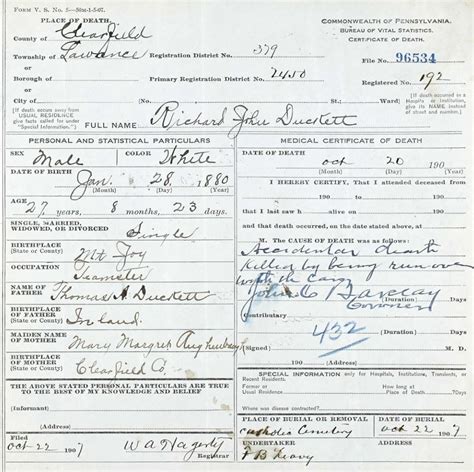 FORM V. S. No. 5—50M-1-5-07.
PLACE OF DEATH.
County of Clearfield
Township of Lawrence
Registration District No. 379
or
Borough of
Primary Registration District No. 2450
or
City of
(No. St.; Ward)
(If death occurs away from USUAL RESIDENCE give facts called for under "Special Information.")
FULL NAME: Richard John Duckett
COMMONWEALTH OF PENNSYLVANIA.
BUREAU OF VITAL STATISTICS.
CERTIFICATE OF DEATH.
FILE No. 96534
Registered No. 192
(If death occurred in a Hospital or Institution, give its NAME instead of street and number.)
PERSONAL AND STATISTICAL PARTICULARS
SEX Male
COLOR White
DATE OF BIRTH Jan. 28 1880
(Month) (Day) (Year)
AGE
27 years, 8 months, 23 days.
SINGLE, MARRIED, WIDOWED, OR DIVORCED Single
BIRTHPLACE (State or Country) Mt Joy
OCCUPATION Teamster
NAME OF FATHER Thomas A Duckett
BIRTHPLACE OF FATHER (State or Country)
MAIDEN NAME OF MOTHER Mary Margret
BIRTHPLACE OF MOTHER (State or Country) Clearfield Co.
THE ABOVE STATED PERSONAL PARTICULARS ARE TRUE TO THE BEST OF MY KNOWLEDGE AND BELIEF
(Informant)
(Address)
Filed Oct 22 1907 W A Hagerty
MEDICAL CERTIFICATE OF DEATH
DATE OF DEATH
Oct 20 190
(Month) (Day) (Year)
I HEREBY CERTIFY, That I attended deceased
from 190 to 190
that I last saw h alive on 190
and that death occurred, on the date stated above, at
M. The CAUSE OF DEATH was as follows:
Accidental death
Killed by being run over
with the cars
John C Barclay
Coroner
Contributory
432
(Signed) M. D.
190 (Address)
SPECIAL INFORMATION only for Hospitals, Institutions, Transients, or Recent Residents.
Former or Usual Residence
How long at Place of Death? Days
Where was disease contracted, if not at place of death?
PLACE OF BURIAL OR REMOVAL Cemetery
DATE OF BURIAL Oct 22 1907
UNDERTAKER